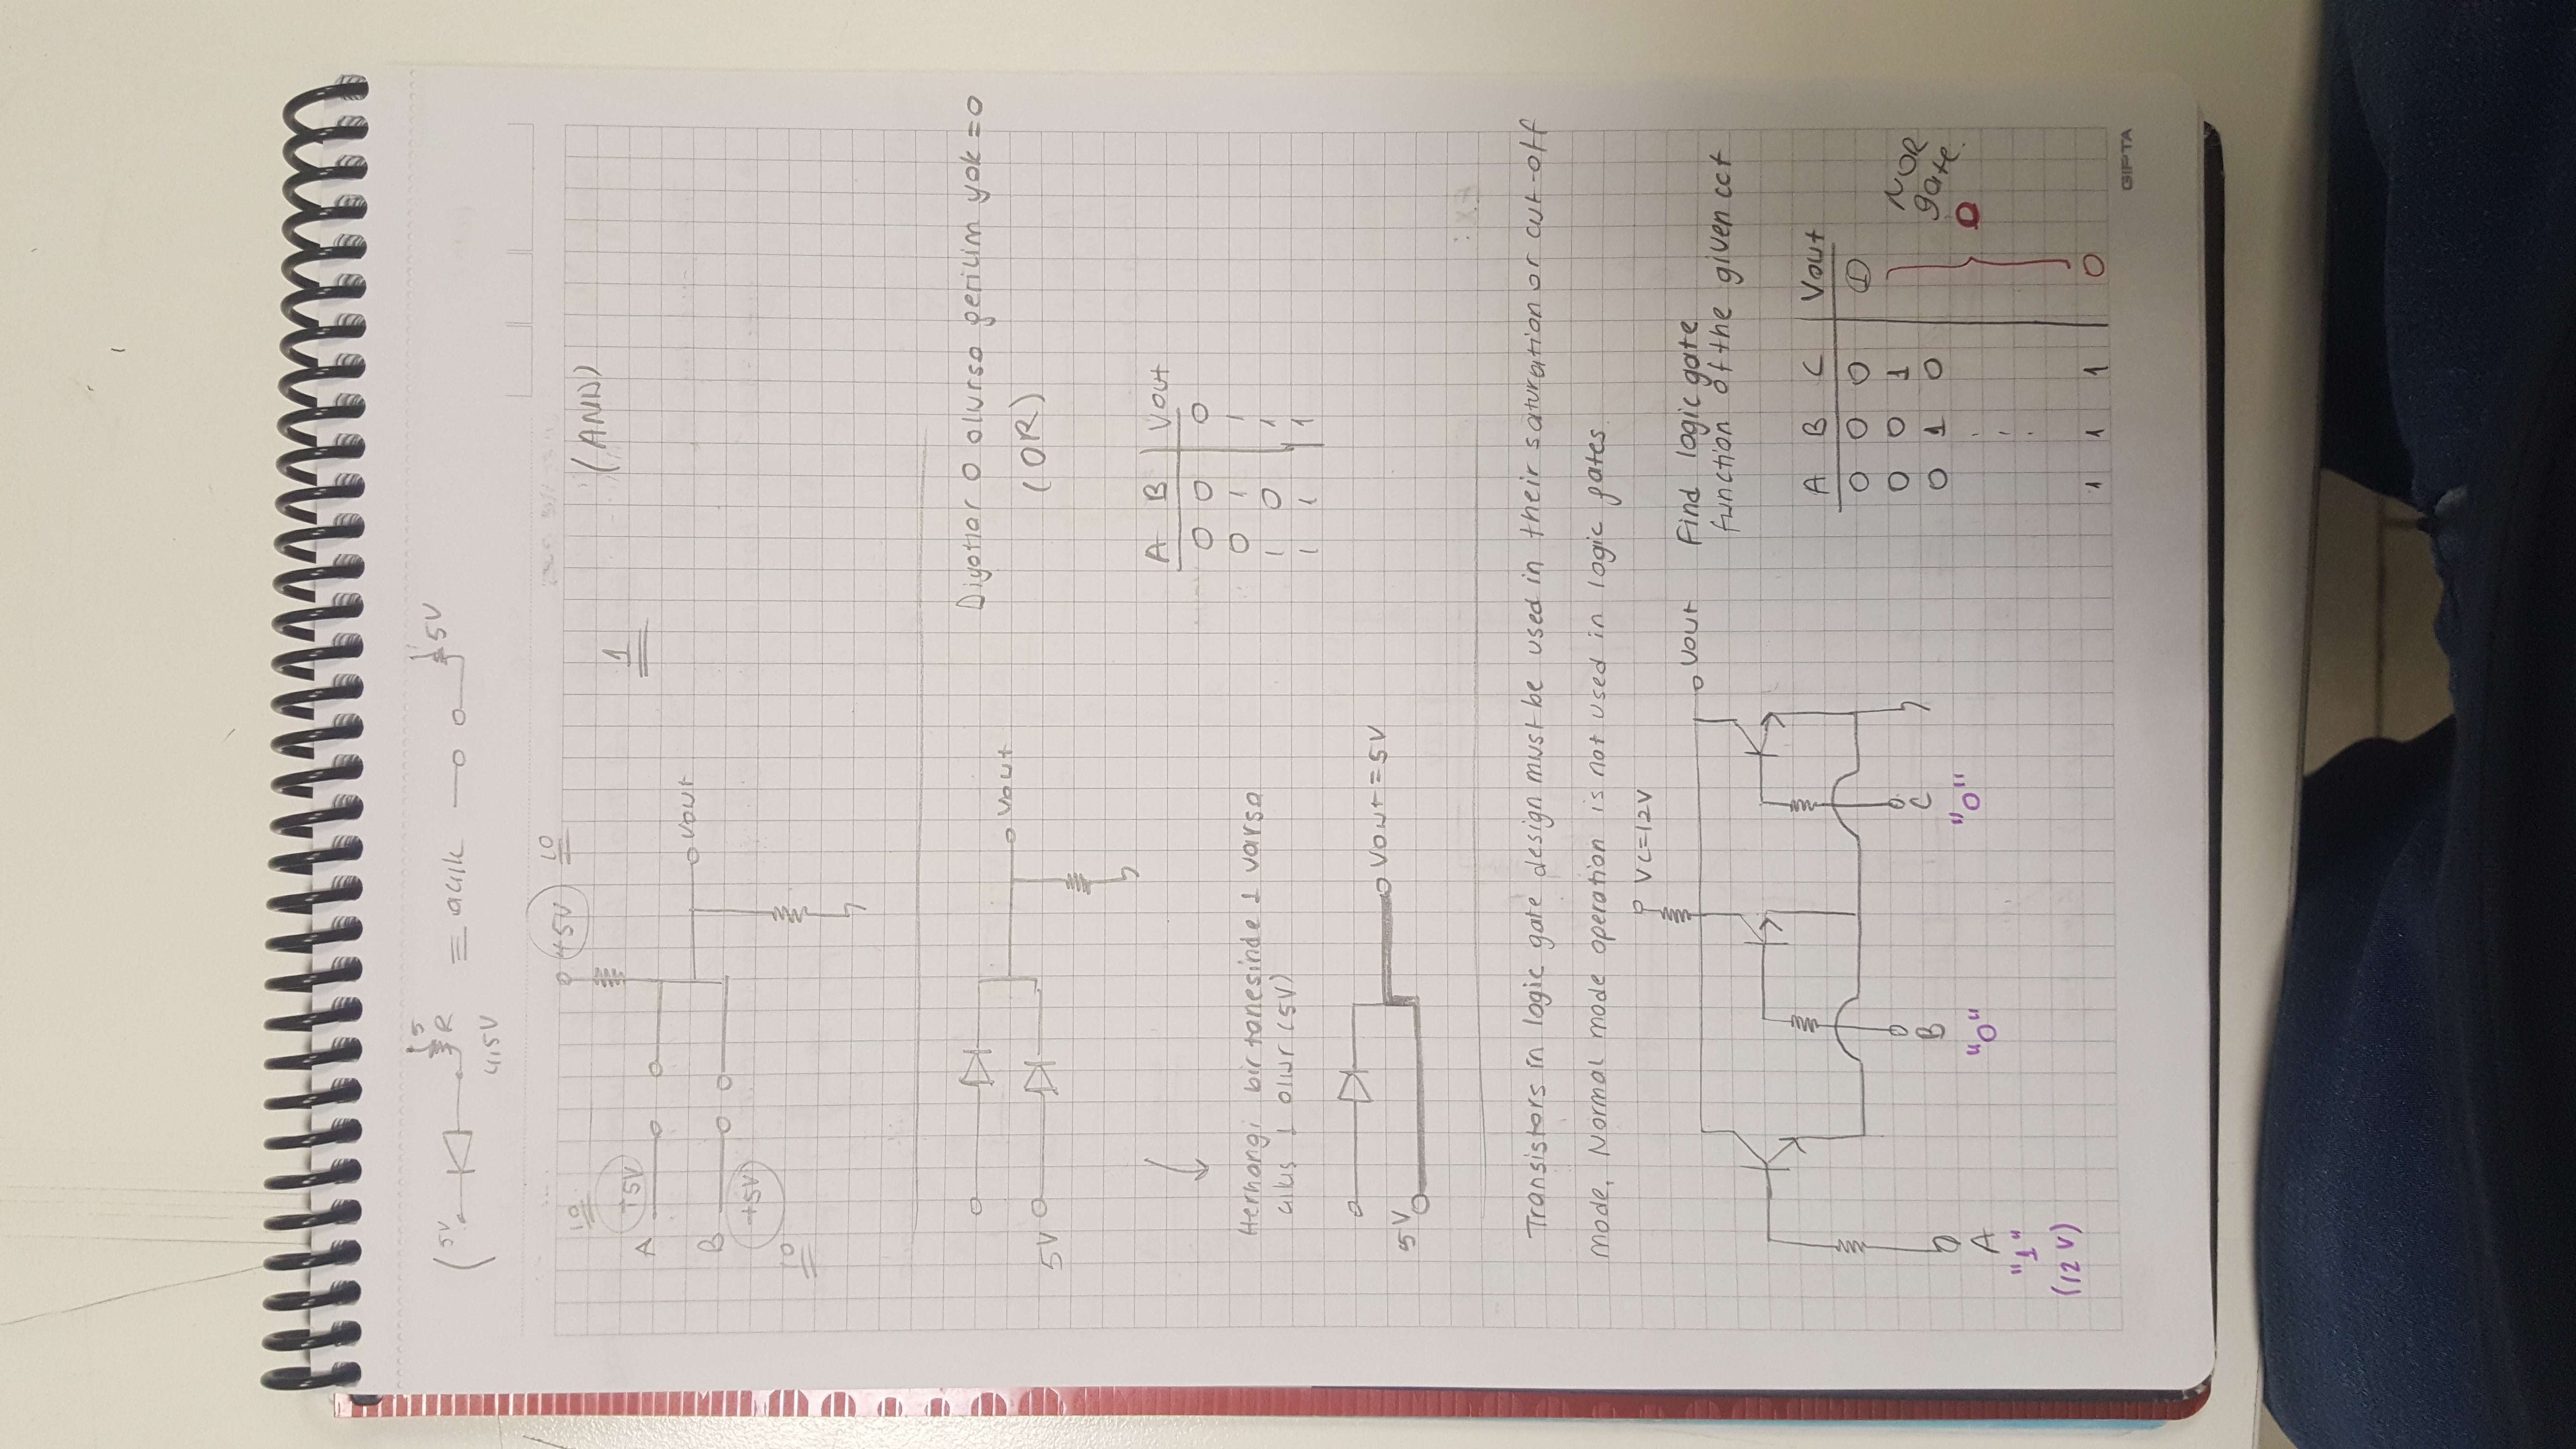 (5V 5
R ≡ acık 5V
4,5V
+5V 10
10
+5V
(AND)
1
A
B
Vout
+5V
10
Diyotlar 0 olursa gerilim yok = 0
(OR)
Vout
5V
A B Vout
0 0 0
0 1 1
1 0 1
1 1 1
Herhangi bir tanesinde 1 varsa
cıkıs 1 olur (5V)
Vout = 5V
5V
Transistors in logic gate design must be used in their saturation or cut-off
mode. Normal mode operation is not used in logic gates.
VC=12V
Vout
Find logic gate
function of the given cct
A B C Vout
0 0 0 1
0 0 1
0 1 0
NOR
gate.
0
1 1 1 0
B
C
"0"
"0"
A
"1"
(12 V)
GIPTA